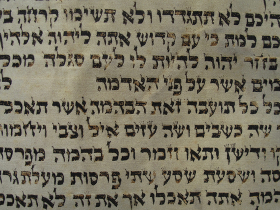 יכם לא תתגדדו ולא תשימו קרחה ב
יכם למת כי עם קדוש אתה ליהוה אלהיך
בחר יהוה להיות לו לעם סגלה מכל
מים אשר על פני האדמה
כל תועבה זאת הבהמה אשר תאכלו
שה כשבים ושה עזים איל וצבי ויחמו
ודישן ותאו וזמר וכל בהמה מפרסת
סה ושסעת שסע שתי פרסות מעלת גר
מה אתה תאכלו אך את זה לא ת